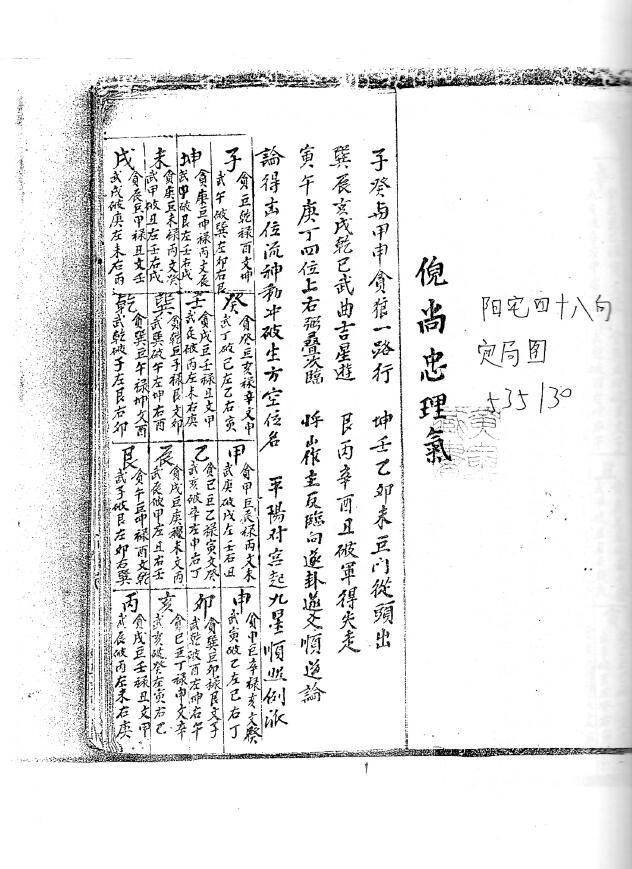 倪尚忠理氣
阳宅四十八句
定局图
子癸與甲申貪狼一路行　坤壬乙卯未巨门從頭出
巽辰亥戌乾巳武曲吉星遊　艮丙辛酉丑破軍得失走
寅午庚丁四位上右弼叠叠臨　將山作主反臨向逐卦逐爻順逆論
論得吉位流神勒冲破生方空位名　平陽对宮起九星順照例派
子
貪巨乾禄酉文坤
武午破巽左卯右艮
坤
貪庚巨坤禄丙文辰
武申破艮左壬右戌
未
貪庚巨未禄丙文癸
武甲破丑左壬右戌
戌
貪辰巨甲禄丑文壬
武戌破庚左未右丙
癸
貪癸巨亥禄辛文申
武丁破己左乙右寅
壬
貪戌巨壬禄丑文甲
武辰破丙左未右庚
巽
貪乾巨子禄艮文卯
武巽破午左坤右酉
乾
貪巽巨午禄坤文酉
武乾破子左艮右卯
甲
貪甲巨辰禄丙文未
武庚破戌左壬右丑
乙
貪己巨乙禄寅文癸
武亥破辛左申右丁
辰
貪戌巨庚禄未文丙
武辰破甲左丑右壬
艮
貪午巨坤禄酉文乾
武子破艮左卯右巽
申
貪申巨辛禄亥文癸
武寅破乙左己右丁
卯
貪巽巨卯禄艮文子
武乾破酉左坤右午
亥
貪己巨丁禄申文辛
武亥破癸左寅右己
丙
貪戌巨壬禄丑文甲
武辰破丙左未右庚